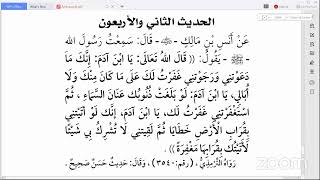 الحديث الثاني والأربعون
عَنْ أَنَسِ بْنِ مَالِكٍ - ﷺ - قَالَ: سَمِعْتُ رَسُولَ اللهِ
- ﷺ - يَقُولُ: «قَالَ اللهُ تَعَالَى: يَا ابْنَ آدَمَ: إِنَّكَ مَا
دَعَوْتَنِي وَرَجَوْتَنِي غَفَرْتُ لَكَ عَلَى مَا كَانَ مِنْكَ وَلَا
أُبَالِي، يَا ابْنَ آدَمَ: لَوْ بَلَغَتْ ذُنُوبُكَ عَنَانَ السَّمَاءِ، ثُمَّ
اسْتَغْفَرْتَنِي غَفَرْتُ لَكَ، يَا ابْنَ آدَمَ، إِنَّكَ لَوْ أَتَيْتَنِي
بِقُرَابِ الْأَرْضِ خَطَايَا ثُمَّ لَقِيتَنِي لَا تُشْرِكُ بِي شَيْئًا
لَأَتَيْتُكَ بِقُرَابِهَا مَغْفِرَةً»
رَوَاهُ التِّرْمِذِيُّ، (رقم: ٣٥٤٠)، وَقَالَ: حَدِيثٌ حَسَنٌ صَحِيحٌ.
zoom